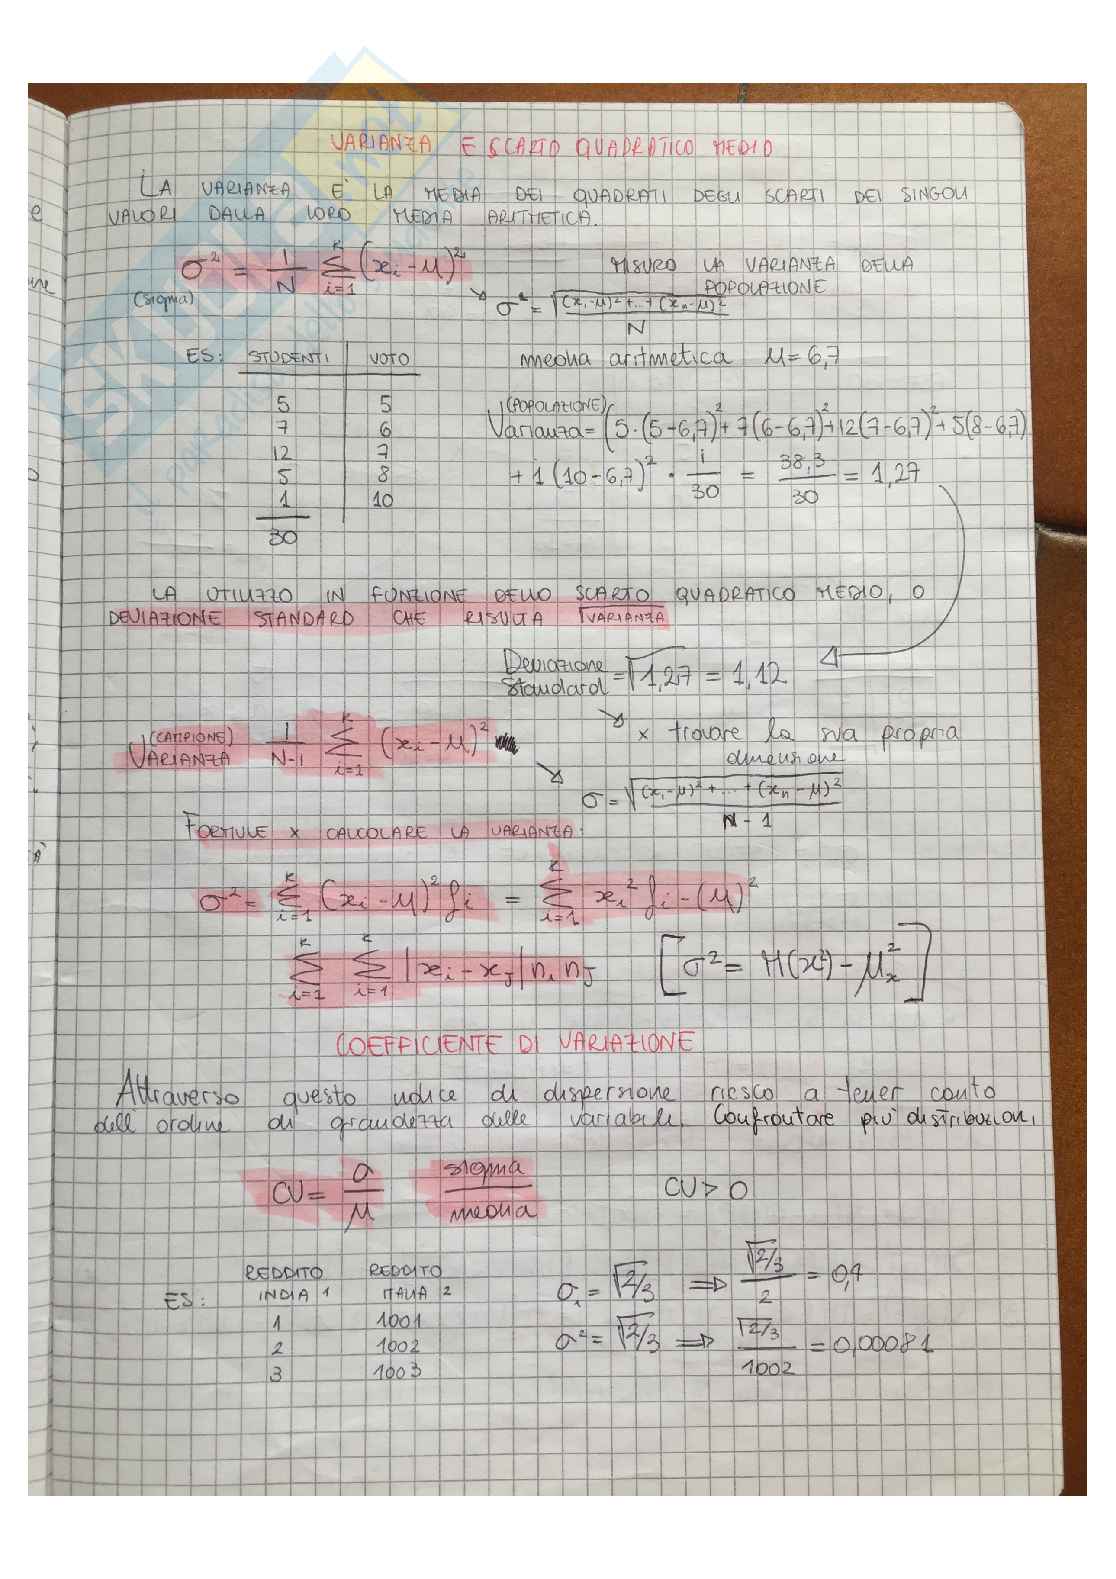 VARIANZA E SCARTO QUADRATICO MEDIO
LA VARIANZA E' LA MEDIA DEI QUADRATI DEGLI SCARTI DEI SINGOLI
VALORI DALLA LORO MEDIA ARITMETICA.
σ² = 1/N Σ_{i=1}^{K} (xi-μ)²
MISURO LA VARIANZA DELLA
POPOLAZIONE
(sigma)
σ² = √(x,-μ)²+...+(xn-μ)² / N
ES: STUDENTI VOTO
media aritmetica μ=6,7
5 5
7 6
12 7
5 8
1 10
30
(POPOLAZIONE)
Varianza=(5·(5-6,7)²+7(6-6,7)²+12(7-6,7)²+5(8-6,7)
+1(10-6,7)² · 1/30 = 38,3/30 = 1,27
LA UTILIZZO IN FUNZIONE DELLO SCARTO QUADRATICO MEDIO, O
DEVIAZIONE STANDARD CHE RISULTA √VARIANZA
Deviazione
Standard = √1,27 = 1,12
x trovare la sua propria
dimensione
(CAMPIONE)
VARIANZA 1/N-1 Σ_{i=1}^{K} (xi-μ)²
σ=√(x,-μ)²+...+(xn-μ)² / N-1
FORMULE x CALCOLARE LA VARIANZA:
σ² = Σ_{i=1}^{K} (xi-μ)² fi = Σ_{i=1}^{K} xi² fi-(μ)²
Σ_{i=1}^{K} Σ_{i=1}^{K} |xi-xJ| ni nJ [σ²= M(x²)-μx²]
COEFFICIENTE DI VARIAZIONE
Attraverso questo indice di dispersione riesco a tener conto
dell'ordine di grandezza delle variabili. Confrontare più distribuzioni
CV= σ/μ sigma/media CV>0
REDDITO REDDITO
ES: INDIA 1 ITALIA 2
1 1001
2 1002
3 1003
σ1 = √2/3 ⇒ √2/3 / 2 = 0,4
σ²= √2/3 ⇒ √2/3 / 1002 = 0,00081